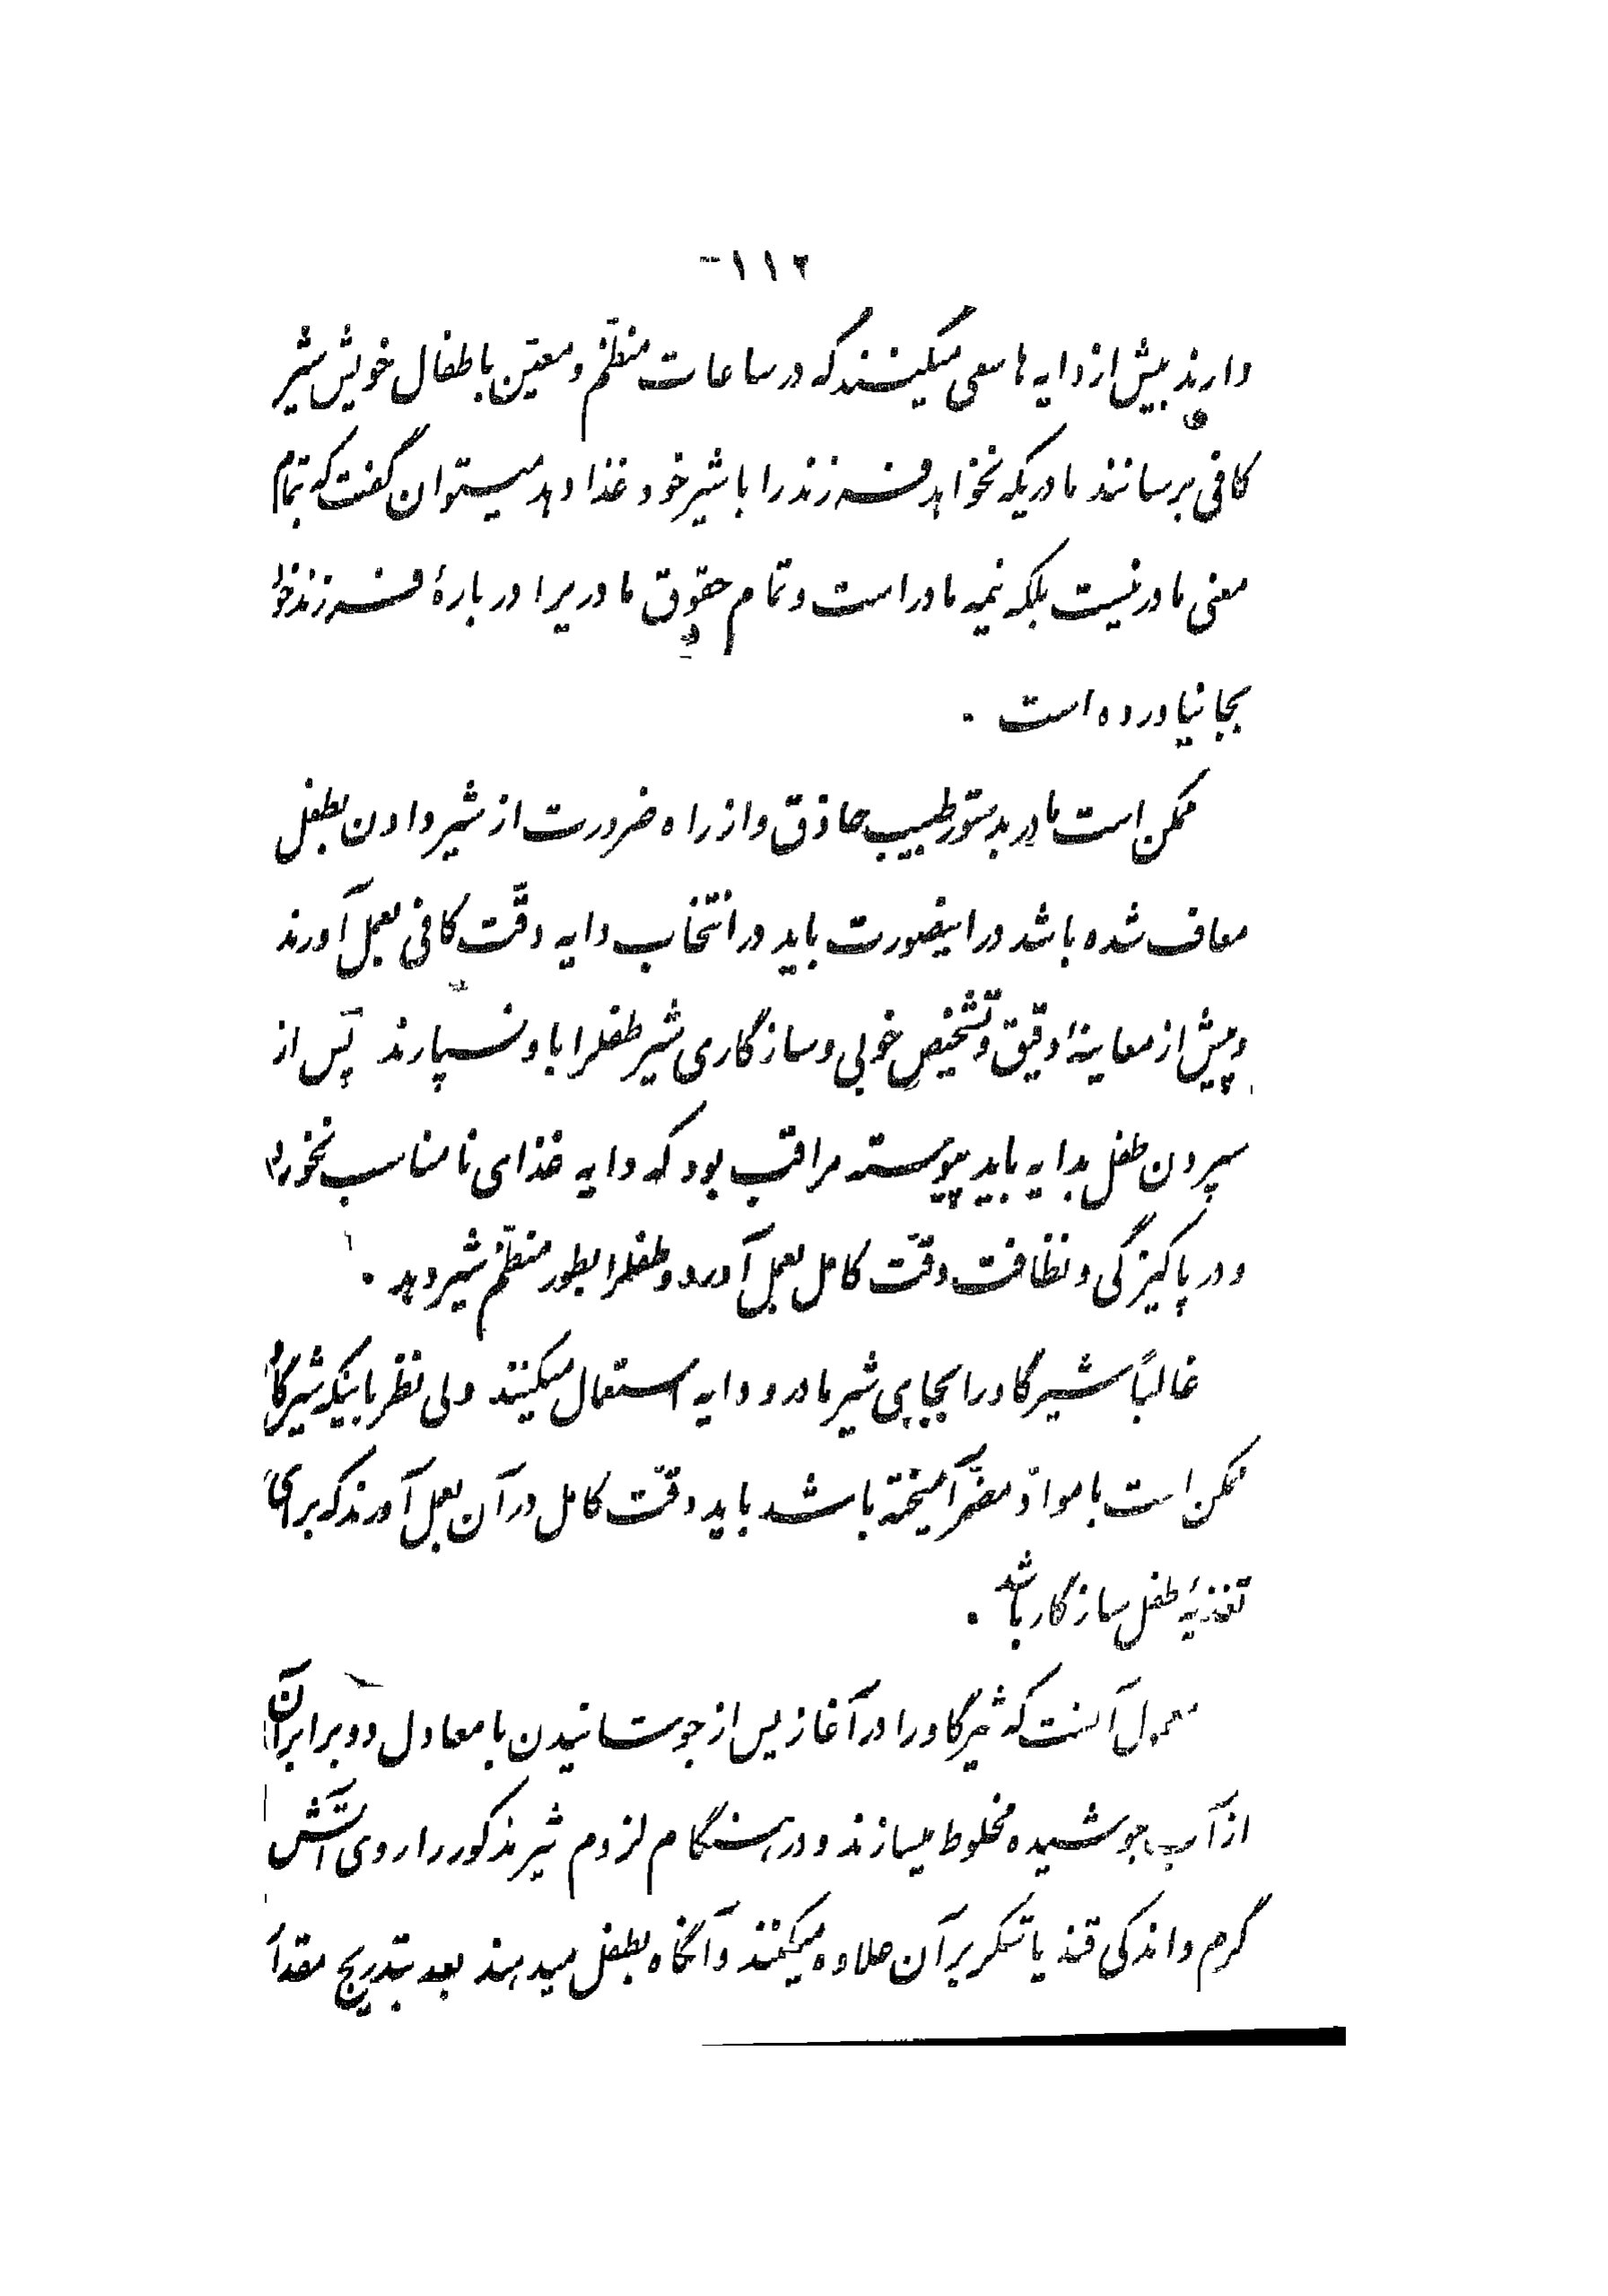 ۱۱۲-
دارند بیش از دایه ها سعی میکنند که در ساعات منظّم و معیّن باطفال خویش شیر
کافی برسانند مادریکه نخواهد فرزند را با شیر خود غذا دهد میتوان گفت که بتمام
معنی مادر نیست بلکه نیمه مادر است و تمام حقوق مادریرا دربارهٔ فرزند خود
بجا نیاورده است .
ممکن است مادر بدستور طبیب حاذق و از راه ضرورت از شیر دادن بطفل
معاف شده باشد در اینصورت باید در انتخاب دایه دقّت کافی بعمل آورند
و پیش از معاینهٔ دقیق و تشخیص خوبی و سازگاری شیر طفلرا باو نسپارند پس از
سپردن طفل بدایه باید پیوسته مراقب بود که دایه غذای نامناسب نخورد
و در پاکیزگی و نظافت دقّت کامل بعمل آورد و طفلرا بطور منظّم شیر دهد .
غالباً شیر گاو را بجای شیر مادر و دایه استعمال میکنند ولی نظر باینکه شیر گاو
ممکن است با موادّ مضرّ آمیخته باشد باید دقّت کامل در آن بعمل آورند که برای
تغذیهٔ طفل سازگار باشد .
معمول آنست که شیر گاو را در آغاز پس از جوشانیدن با معادل دو برابر آن
از آب جوشیده مخلوط میسازند و در هنگام لزوم شیر مذکور را روی آتش
گرم و اندکی قند یا شکر بر آن علاوه میکنند و آنگاه بطفل میدهند بعد بتدریج مقدار